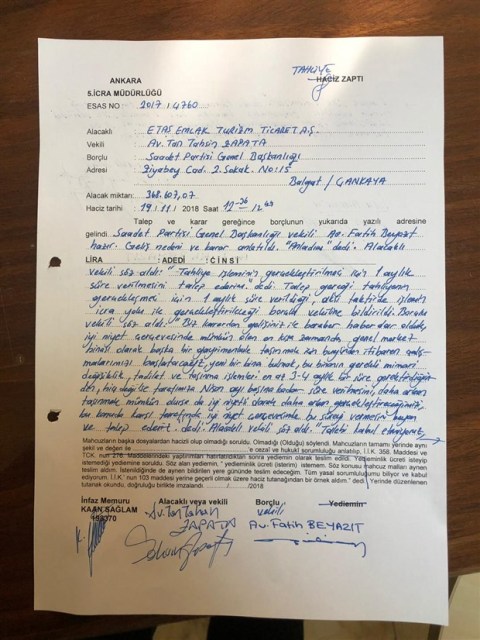 TAHLİYE
ANKARA
HACİZ ZAPTI
5.İCRA MÜDÜRLÜĞÜ
ESAS NO : 2017/4760
Alacaklı : ETAŞ EMLAK TURİZM TİCARET A.Ş.
Vekili : Av. Tan Tahsin ZAPATA
Borçlu : Saadet Partisi Genel Başkanlığı
Adresi : Ziyabey Cad. 2. Sokak. No:15
Balgat / ÇANKAYA
Alacak miktarı: 368.607,07
Haciz tarihi : 19/11/2018 Saat
Talep ve karar gereğince borçlunun yukarıda yazılı adresine
gelindi. Saadet Partisi Genel Başkanlığı vekili Av. Fatih Beyazıt
hazır. Geliş nedeni ve karar anlatıldı. "Anladım" dedi. Alacaklı
LİRA : ADEDİ : CİNSİ
vekili söz aldı: "Tahliye işleminin gerçekleştirilmesi için 1 aylık
süre verilmesini talep ederim" dedi. Talep gereği tahliyenin
gerçekleşmesi için 1 aylık süre verildiği, aksi taktirde işlemin
icra yolu ile gerçekleştirileceği borçlu vekiline bildirildi. Borçlu
vekili söz aldı: "Biz karardan gelişiniz ile beraber haberdar olduk,
iyi niyet çerçevesinde mümkün olan en kısa zamanda, genel merkez
binası olarak başka bir taşınmak için bugünden itibaren çalış-
malarımızı başlatacağız, yeni bir bina bulmak, bu binanın gerekli mimari
değişiklik, tadilat ve taşınma işlemleri en az 3-4 aylık bir süre gerektirdiğin-
den, hiç değilse tarafımıza Nisan ayı başına kadar süre verilmesini, daha erken
taşınmak mümkün olursa da iyi niyetli olarak daha erken gerçekleştireceğimizi,
bu konuda karşı tarafında iyi niyet çerçevesinde bu süreyi vermesini beyan
ve talep ederiz. dedi. Alacaklı vekili söz aldı: "Talebi kabul etmiyoruz"
Mahcuzların başka dosyalardan hacizli olup olmadığı soruldu. Olmadığı (Olduğu) söylendi. Mahcuzların tamamı yerinde aynı
şekil ve değeri ile 'e cezai ve hukuk sorumluluğu anlatılıp, İ.İ.K. 358. Maddesi ve
TCK. nun 276. Maddelerindeki yaptırımları hatırlatıldıktan sonra yediemin olarak teslim edildi. Yedieminlik ücreti isteyip
istemediği yediemine soruldu. Söz alan yediemin, " yedieminlik ücreti (isterim) istemem. Söz konusu mahcuz malları aynen
teslim aldım. İstenildiğinde de aynen bildirilen yere gününde teslim edeceğim. Tüm yasal sorumluluğumu biliyor ve kabul
ediyorum. İ.İ.K." nun 103 maddesi yerine geçerli olmak üzere haciz tutanağından bir örnek aldım." dedi. Yerinde düzenlenen
tutanak okundu, doğruluğu birlikte imzalandı. /2018
İnfaz Memuru Alacaklı veya vekili Borçlu Yediemin
KAAN SAĞLAM Av. Tan Tahsin vekili
ZAPATA Av. Fatih BEYAZIT